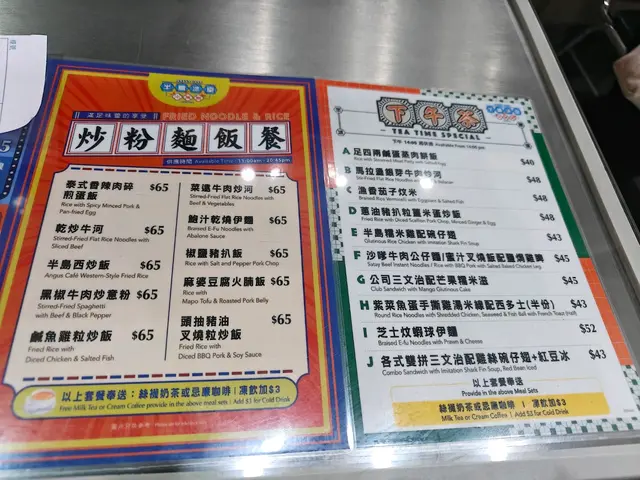 滿足味蕾的享受
FRIED NOODLE & RICE
炒粉麵飯餐
供應時間 Available Time: 11:00am - 20:45pm
泰式香辣肉碎
煎蛋飯
$65
Rice with Spicy Minced Pork &
Pan-fried Egg
乾炒牛河 $65
Stirred-Fried Flat Rice Noodles with
Sliced Beef
半島西炒飯 $65
Angus Café Western-Style Fried Rice
黑椒牛肉炒意粉 $65
Stirred-Fried Spaghetti
with Beef & Black Pepper
鹹魚雞粒炒飯 $65
Fried Rice with
Diced Chicken & Salted Fish
菜遠牛肉炒河 $65
Stir-Fried Flat Rice Noodles with
Beef & Vegetables
鮑汁乾燒伊麵 $65
Braised E-Fu Noodles with
Abalone Sauce
椒鹽豬扒飯 $65
Rice with Salt and Pepper Pork Chop
麻婆豆腐火腩飯 $65
Rice with
Mapo Tofu & Roasted Pork Belly
頭抽豬油
叉燒粒炒飯
$65
Fried Rice with
Diced BBQ Pork & Soy Sauce
以上套餐奉送：絲襪奶茶或忌廉咖啡 | 凍飲加$3
Free Milk Tea or Cream Coffee provide in the above meal sets | Add $3 for Cold Drink
下午茶
TEA TIME SPECIAL
A 足四兩鹹蛋蒸肉餅飯 $40
B 馬拉盞銀芽牛肉炒河 $48
C 漁香茄子炆米 $48
Braised Rice Vermicelli with Eggplant & Salted Fish
D 蔥油豬扒粒粟米蛋炒飯 $48
Fried Rice with Diced Scallion Pork Chop, Minced Ginger & Egg
E 半島糯米雞配碗仔翅 $43
Glutinous Rice Chicken with Imitation Shark Fin Soup
F 沙嗲牛肉公仔麵/蜜汁叉燒飯配鹽焗雞髀 $45
Satay Beef Instant Noodles / Rice with BBQ Pork with Salted Baked Chicken Leg
G 公司三文治配芒果糯米滋 $45
Club Sandwich with Mango Glutinous Cake
H 紫菜魚蛋手撕雞湯米線配西多士(半份) $43
Round Rice Noodles with Shredded Chicken, Seaweed & Fish Ball with French Toast (Half)
I 芝士炆蝦球伊麵 $52
Braised E-Fu Noodles with Prawn & Cheese
J 各式雙拼三文治配雞絲碗仔翅+紅豆冰 $43
Combo Sandwich with Imitation Shark Fin Soup, Red Bean Iced
以上套餐奉送
Provide in the above Meal Sets
絲襪奶茶或忌廉咖啡 | 凍飲加$3
Milk Tea or Cream Coffee | Add $3 for Cold Drink